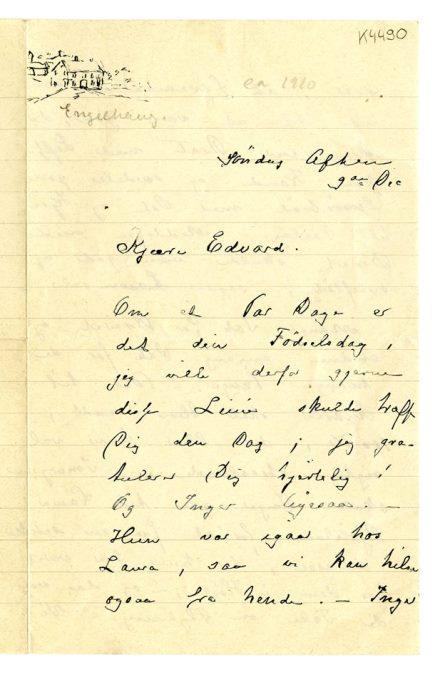 K4490
ca. 1910
Engelhaug
Söndag Aften
9de Dec
Kjære Edvard.
Om et Par Dage er
det din Födselsdag,
jeg vilde derfor gjerne
disse Linier skulde træffe
Dig den Dag; jeg gra-
tulerer Dig hjertelig!
Og Inger ligesaa. –
Hun var igaar hos
Laura, saa vi kan hilse
ogsaa fra hende. – Inger